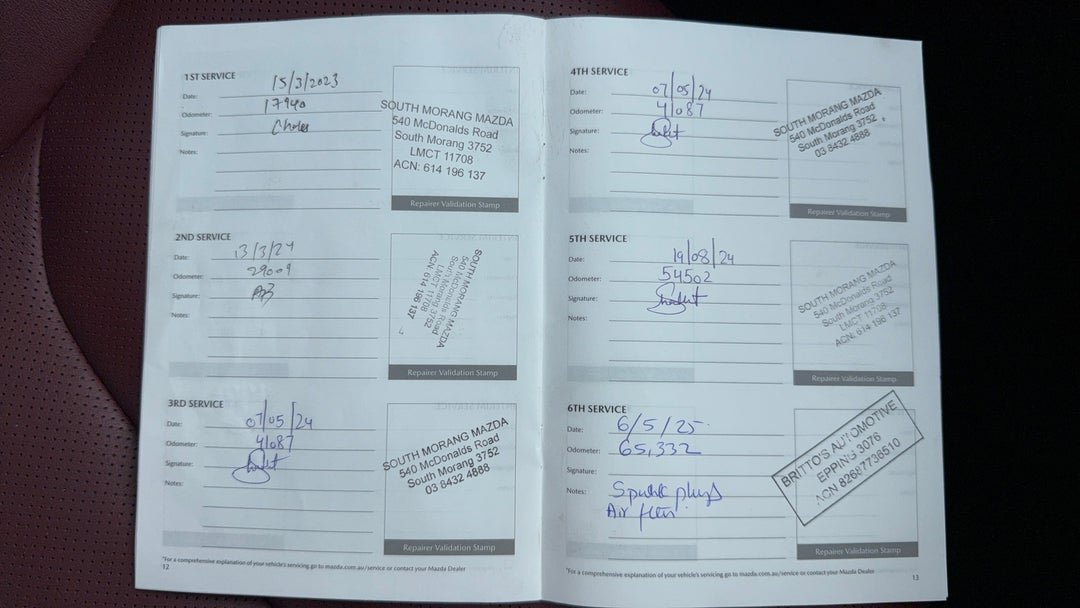 1ST SERVICE
Date: 15/3/2023
Odometer: 17940
Signature:
Notes:
SOUTH MORANG MAZDA
540 McDonalds Road
South Morang 3752
LMCT 11708
ACN: 614 196 137
Repairer Validation Stamp
2ND SERVICE
Date: 13/3/24
Odometer: 29009
Signature:
Notes:
SOUTH MORANG MAZDA
540 McDonalds Road
South Morang 3752
LMCT 11708
ACN: 614 196 137
Repairer Validation Stamp
3RD SERVICE
Date: 07/05/24
Odometer: 41087
Signature:
Notes:
SOUTH MORANG MAZDA
540 McDonalds Road
South Morang 3752
03 8432 4888
Repairer Validation Stamp
*For a comprehensive explanation of your vehicle's servicing go to mazda.com.au/service or contact your Mazda Dealer
12
4TH SERVICE
Date: 07/05/24
Odometer: 41087
Signature:
Notes:
SOUTH MORANG MAZDA
540 McDonalds Road
South Morang 3752
03 8432 4888
Repairer Validation Stamp
5TH SERVICE
Date: 19/08/24
Odometer: 54502
Signature:
Notes:
SOUTH MORANG MAZDA
540 McDonalds Road
South Morang 3752
LMCT 11708
ACN: 614 196 137
Repairer Validation Stamp
6TH SERVICE
Date: 6/5/25
Odometer: 65,332
Signature:
Notes: Spark plugs
Air filter
BRITTO'S AUTOMOTIVE
EPPING 3076
ACN 82687736510
Repairer Validation Stamp
*For a comprehensive explanation of your vehicle's servicing go to mazda.com.au/service or contact your Mazda Dealer
13